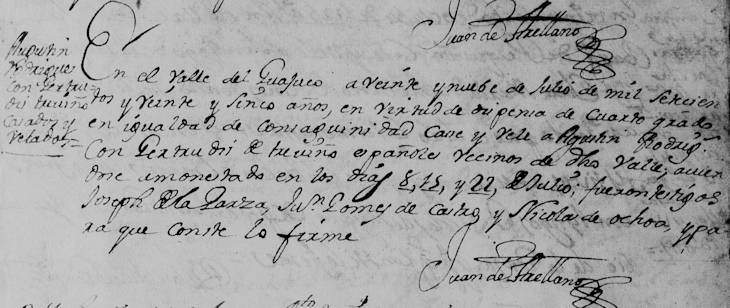 Juan de Arellano
Augustin
Rodrigues
con Gertru
dis treviño
Casados y
Velados
En el Valle del Guajuco a veinte y nuebe de Julio de mil setecien
tos y veinte y sinco años, en virtud de dispensa de quarto grado
en igualdad de consaguinidad Case y Vele a Agustin Rodrig.
con Gertrudis de treviño españoles vecinos de dho Valle, avien
dose amonestado en los dias 8, 15, y 22, de Julio; fueron testigos
Joseph de la Garza, Ju.n Gomes de Castro y Nicolas de ochoa, y pa
ra que conste lo firmé
Juan de Arellano